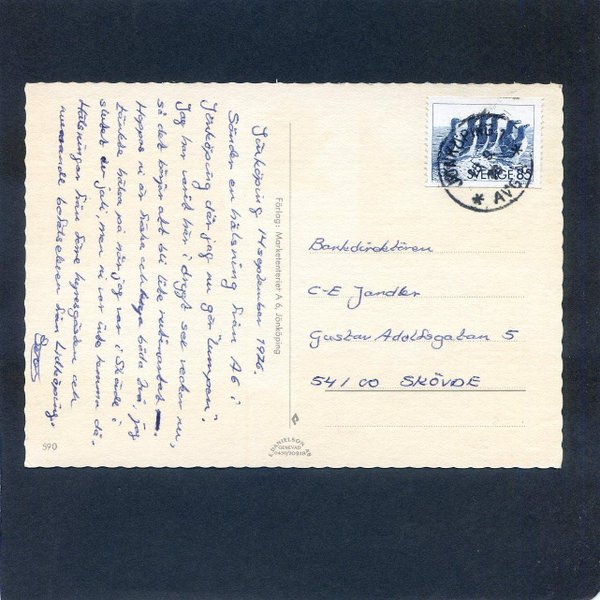 Jönköping 14 september 1976.
Sänder en hälsning från A6 i
Jönköping där jag nu gör "lumpen".
Jag har varit här i drygt sex veckor nu,
så det börjar att bli lite rutinartat.
Hoppas ni är friska och krya båda två, jag
tänkte hälsa på när jag var i Skövde i
slutet av juli, men ni var inte hemma då.
Hälsningar från före hyresgästen och
nuvarande befälseleven från Lidköping.
Förlag: Marketenteriet A 6, Jönköping
590
E. DANIELSON
SVERIGE 85
JÖNKÖPING
AVG
Bankdirektören
C-E Jandler
Gustav Adolfsgatan 5
541 00 SKÖVDE